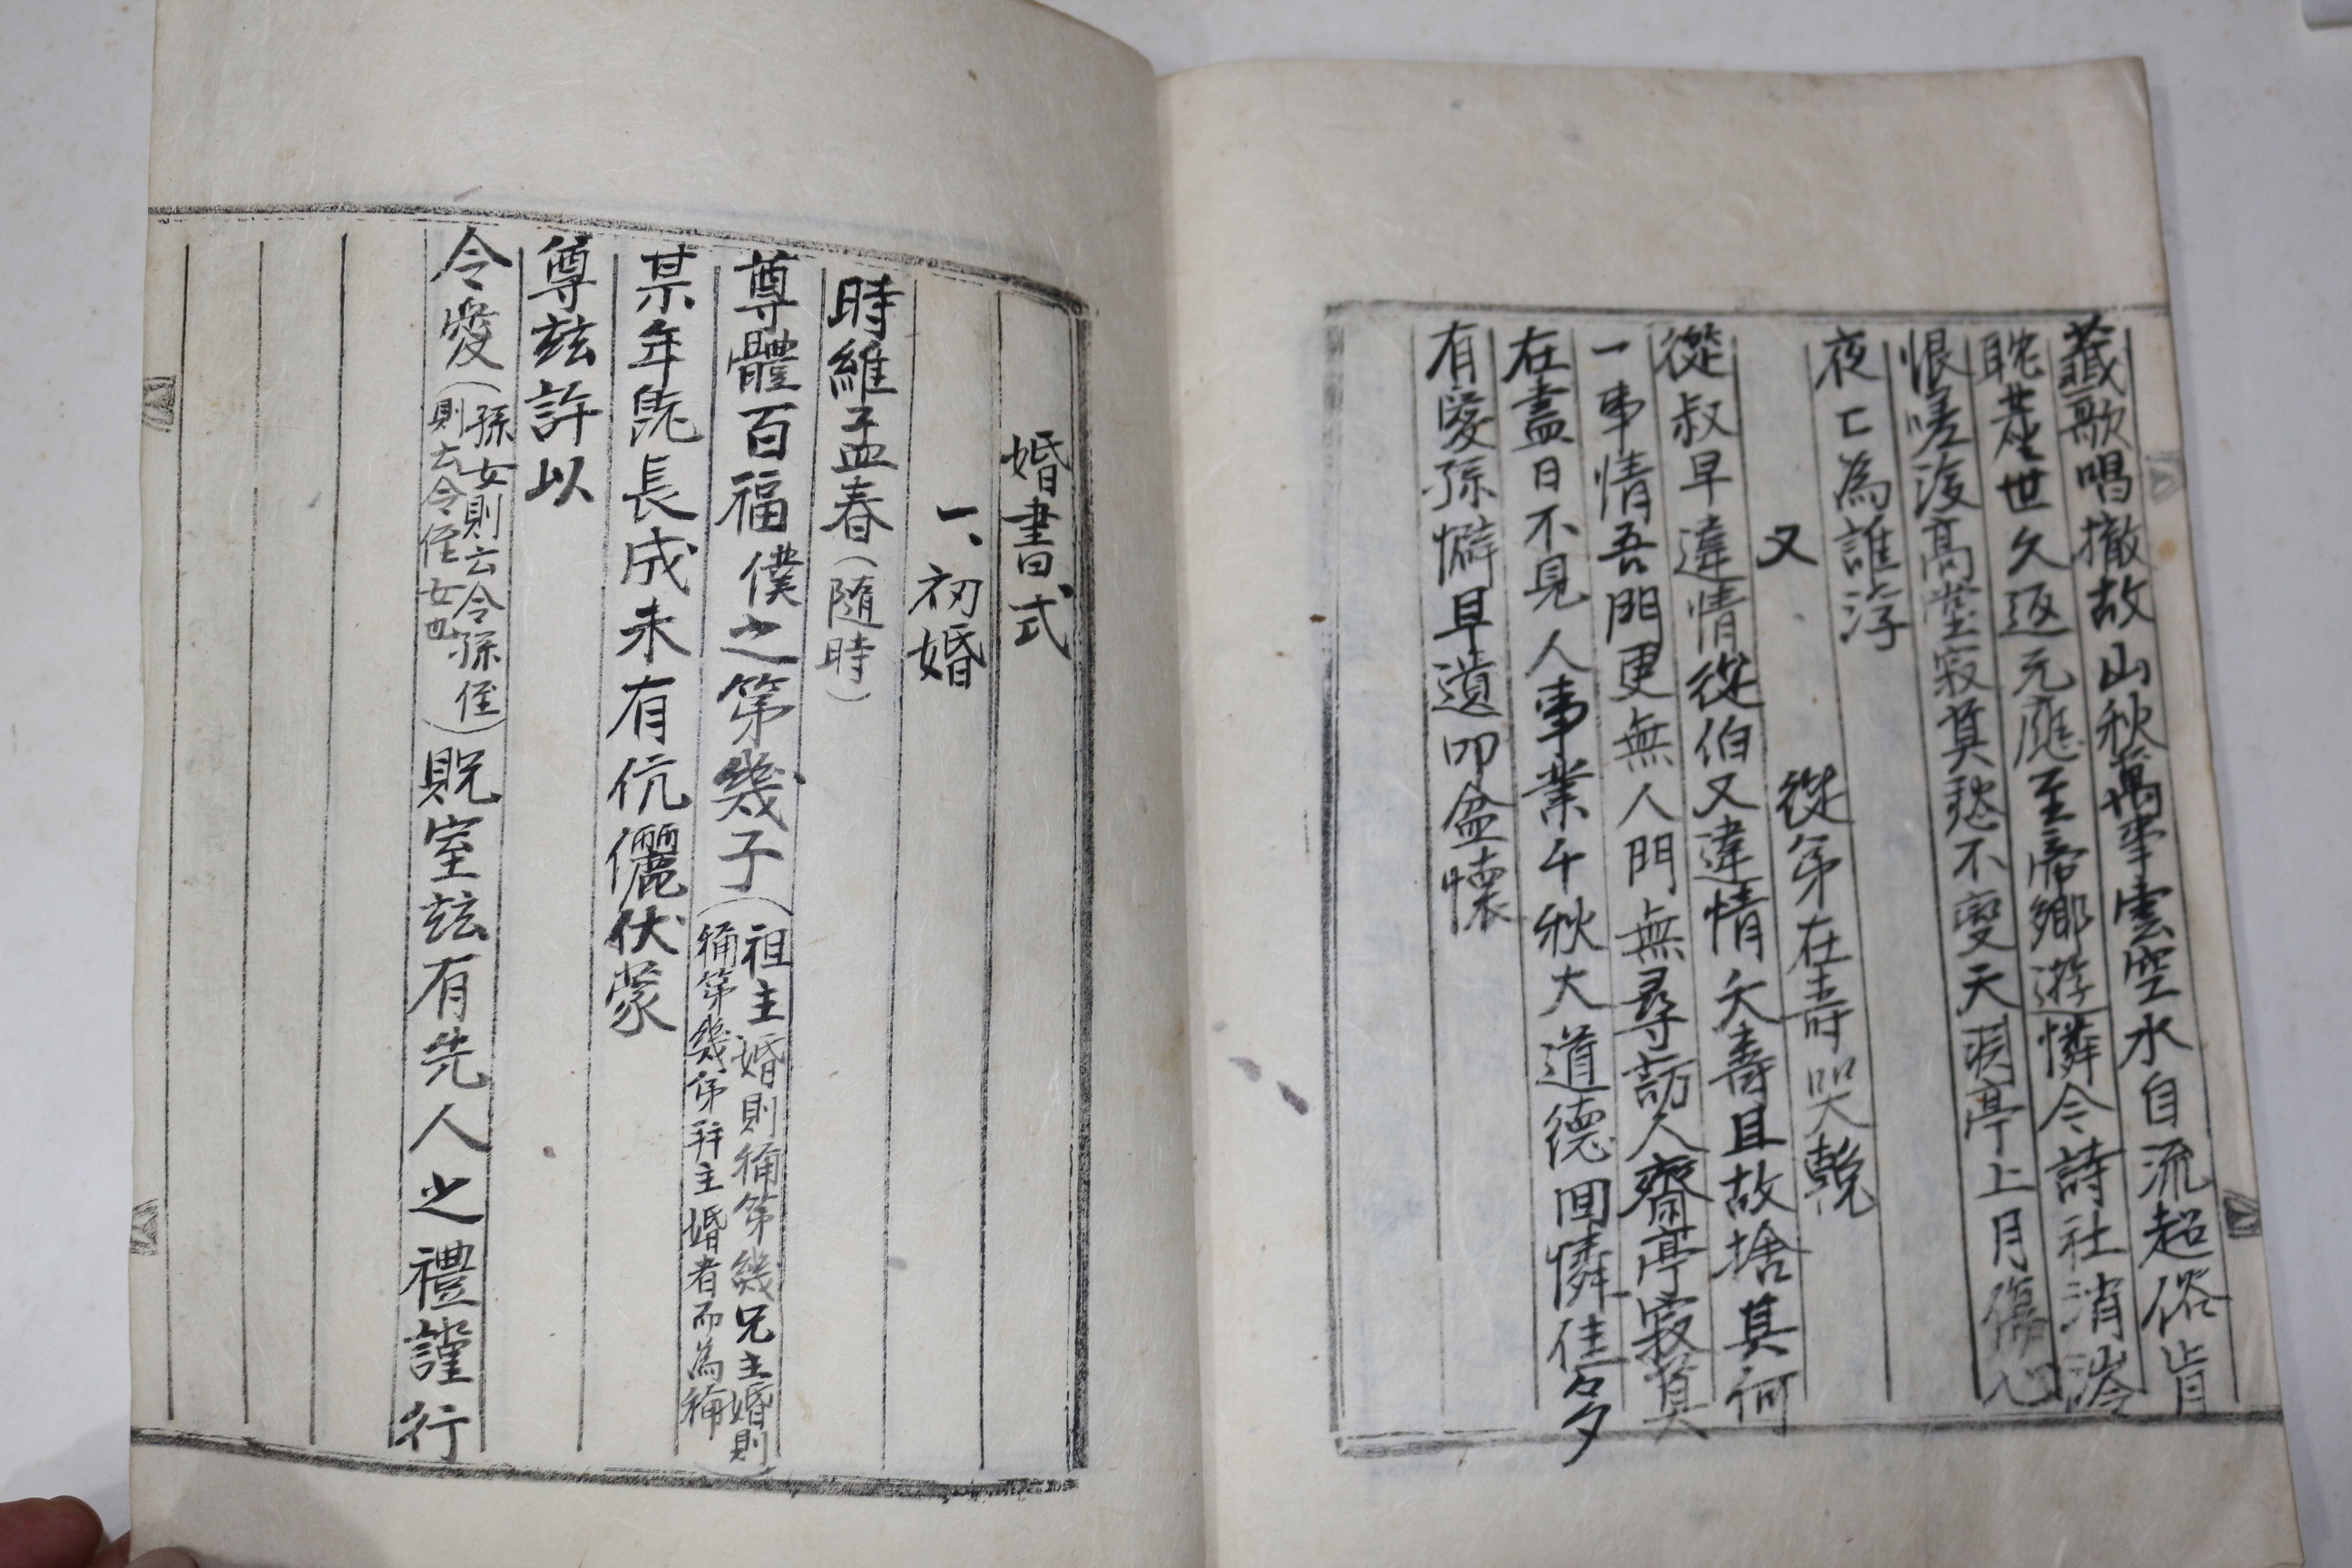 薤歌唱撤故山秋萬事雲空水自流超俗肯
耽楚世久返元應至帝鄕遊憐今詩社消淪
恨嗟後高堂寂莫愁不變天淚亭上月傷心
夜亡為誰浮
又
從弟在壽哭輓
從叔早違情從伯又違情夭壽且故捨其何
一事情吾門更無人門無尋訪人齋亭寂莫
在盡日不見人事業千秋大道德回憐佳名夕
有愛孫懈早遺叩盆懷
婚書式
一、初婚
時維孟春(隨時)
尊體百福僕之第幾子(祖主婚則稱第幾兄主婚則
稱第幾弟并主婚者而為稱)
某年旣長成未有伉儷伏蒙
尊玆許以
令愛(孫女則云令孫侄
則云令侄女也)貺室玆有先人之禮謹行